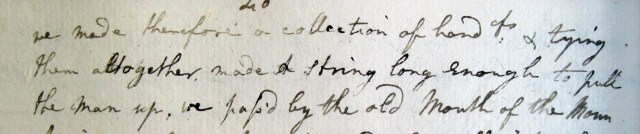 we made therefore a collection of handfs. & tying
them altogether, made A string long enough to pull
the man up, we pass'd by the old Mouth of the Moun